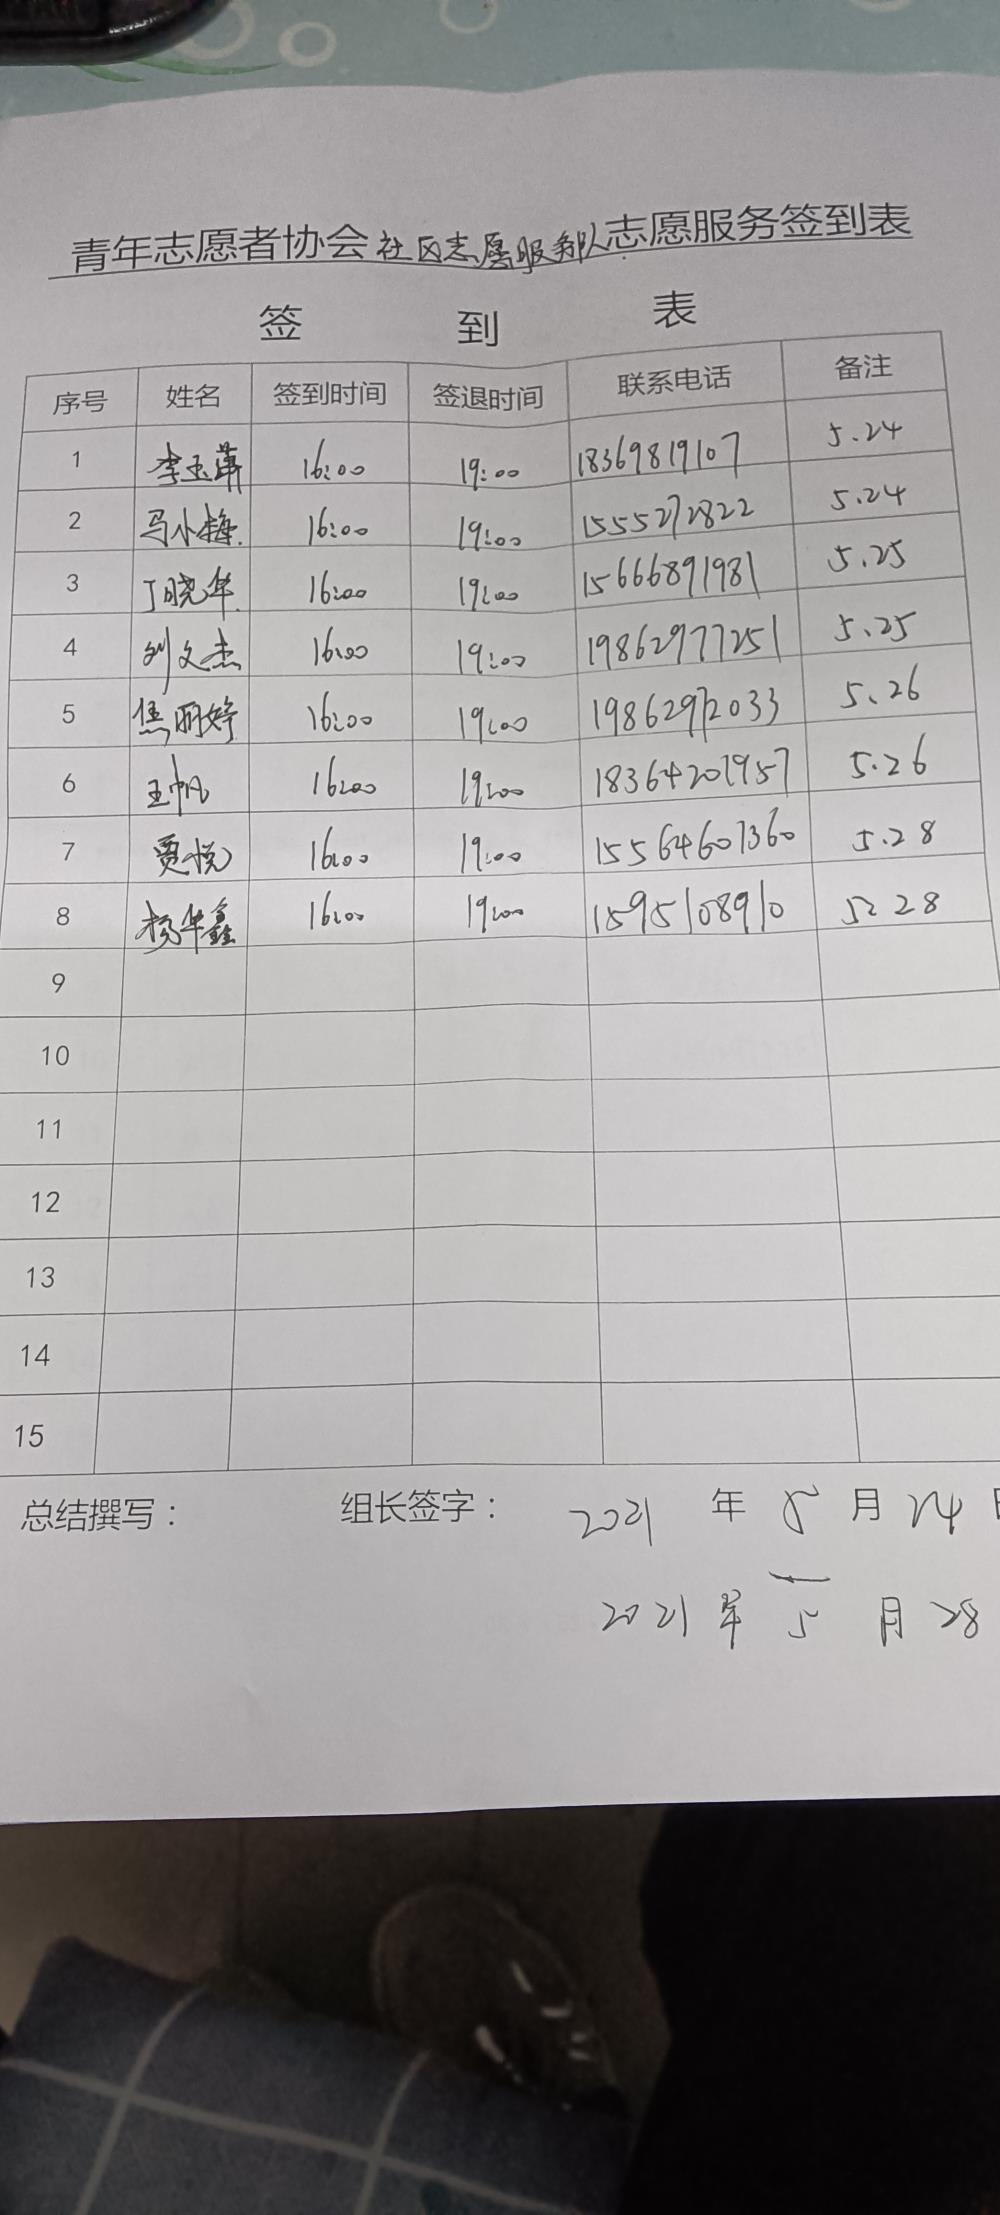 青年志愿者协会社区志愿服务部队志愿服务签到表
签 到 表
序号 姓名 签到时间 签退时间 联系电话 备注
1 李玉萍 16:00 19:00 18369819107 5.24
2 马小梅 16:00 19:00 1555272822 5.24
3 丁晓华 16:00 19:00 15666891981 5.25
4 刘文杰 16:00 19:00 19862977251 5.25
5 焦丽婷 16:00 19:00 19862972033 5.26
6 王帆 16:00 19:00 18364207957 5.26
7 贾悦 16:00 19:00 15564607360 5.28
8 杨华鑫 16:00 19:00 1595108910 5.28
9
10
11
12
13
14
15
总结撰写： 组长签字： 2021 年 5 月 24 日
2021年 5 月 28